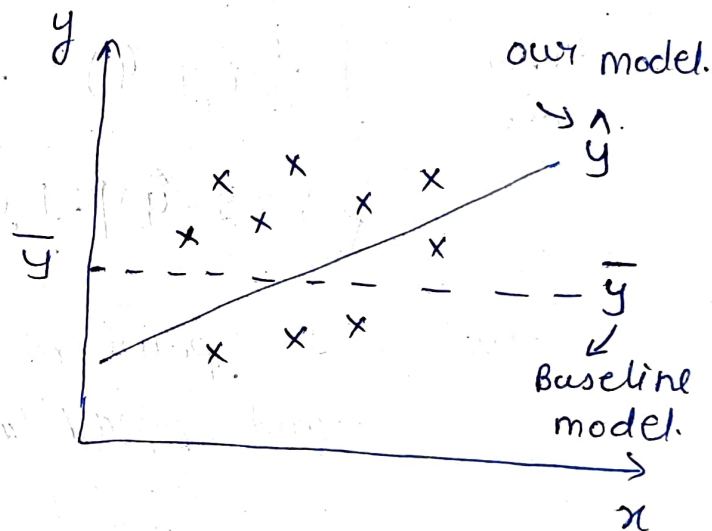 y
our model.
ŷ
ȳ
ȳ
Baseline
model.
x